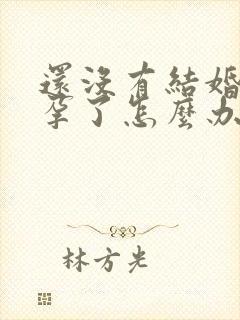 還沒有結婚
孕了怎麼办
林方光